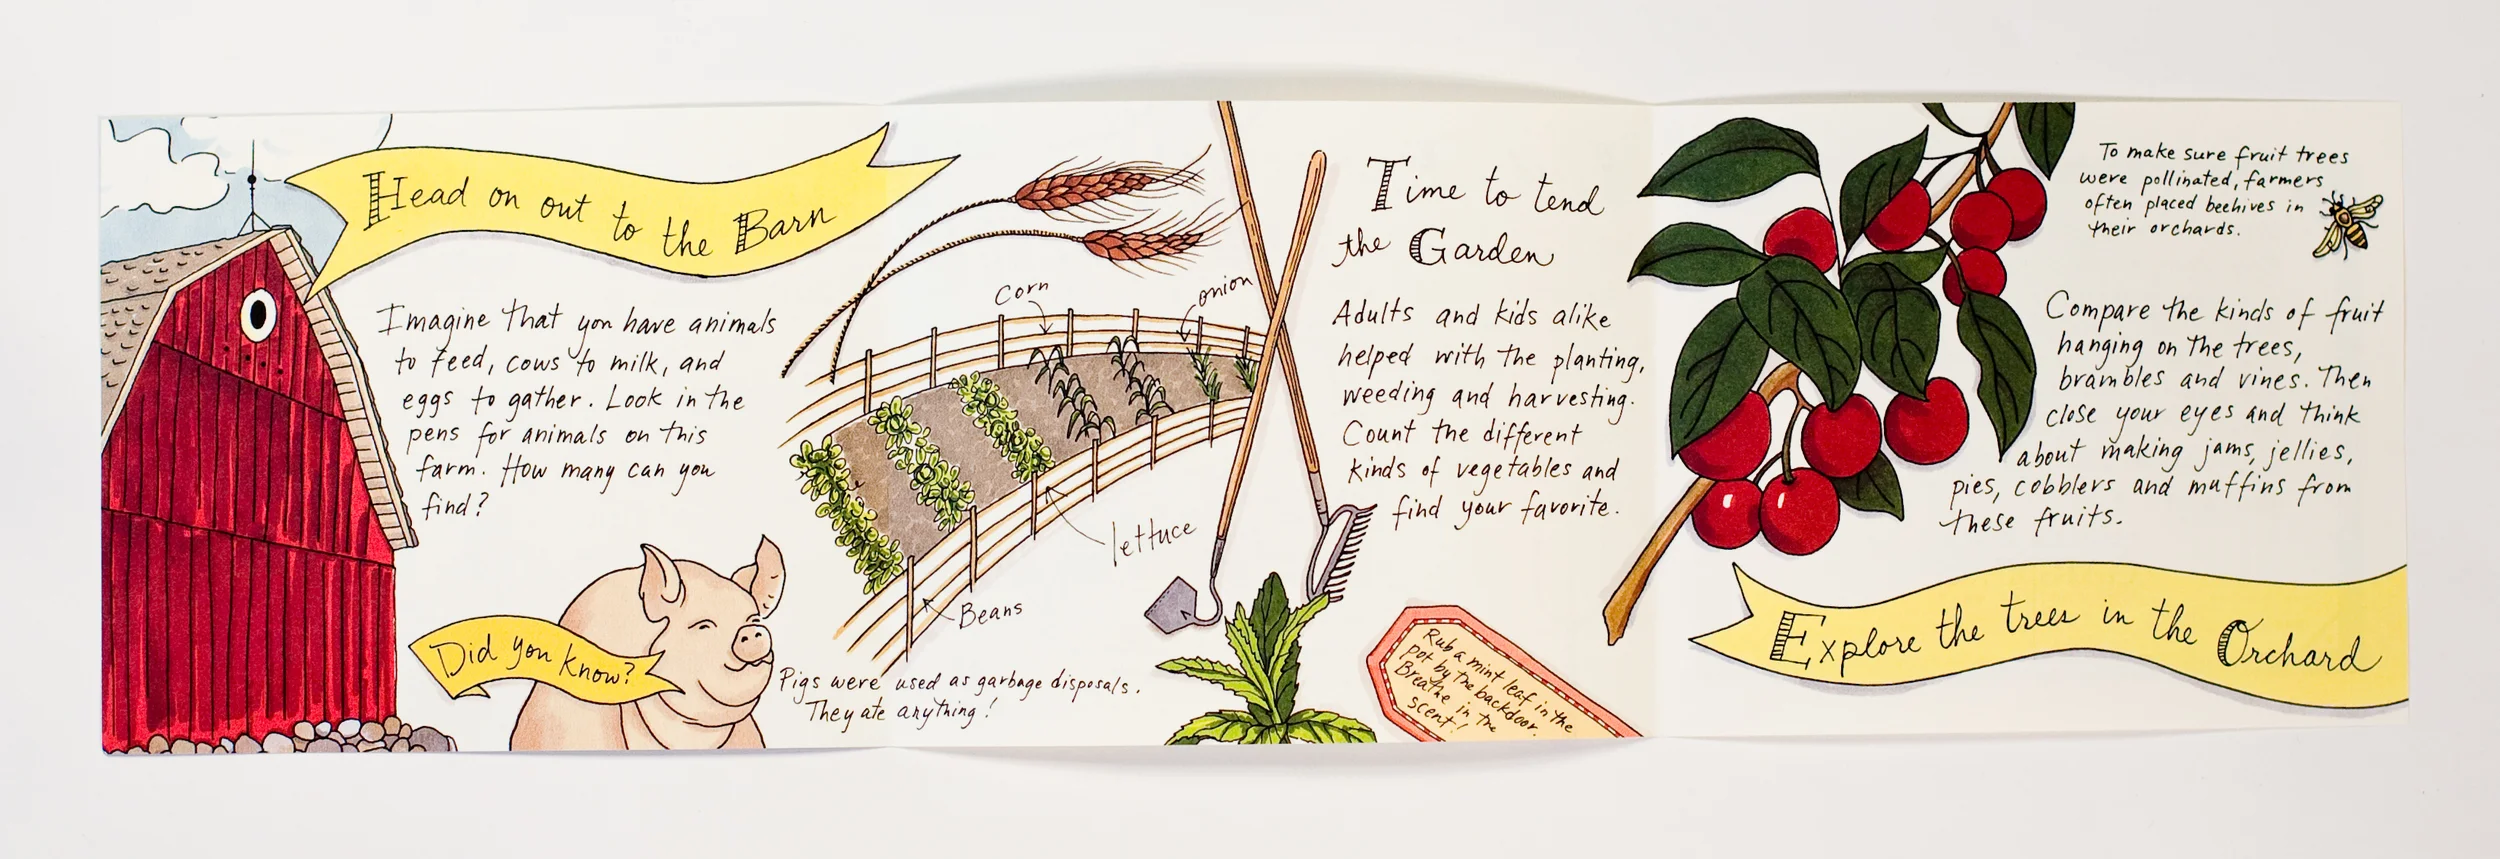 Head on out to the Barn
Imagine that you have animals
to feed, cows to milk, and
eggs to gather. Look in the
pens for animals on this
farm. How many can you
find?
Did you know?
Pigs were used as garbage disposals.
They ate anything!
corn
onion
lettuce
Beans
Time to tend
the Garden
Adults and kids alike
helped with the planting,
weeding and harvesting.
Count the different
kinds of vegetables and
find your favorite.
Rub a mint leaf in the
pot by the backdoor.
Breathe in the
scent!
To make sure fruit trees
were pollinated, farmers
often placed beehives in
their orchards.
Compare the kinds of fruit
hanging on the trees,
brambles and vines. Then
close your eyes and think
about making jams, jellies,
pies, cobblers and muffins from
these fruits.
Explore the trees in the Orchard